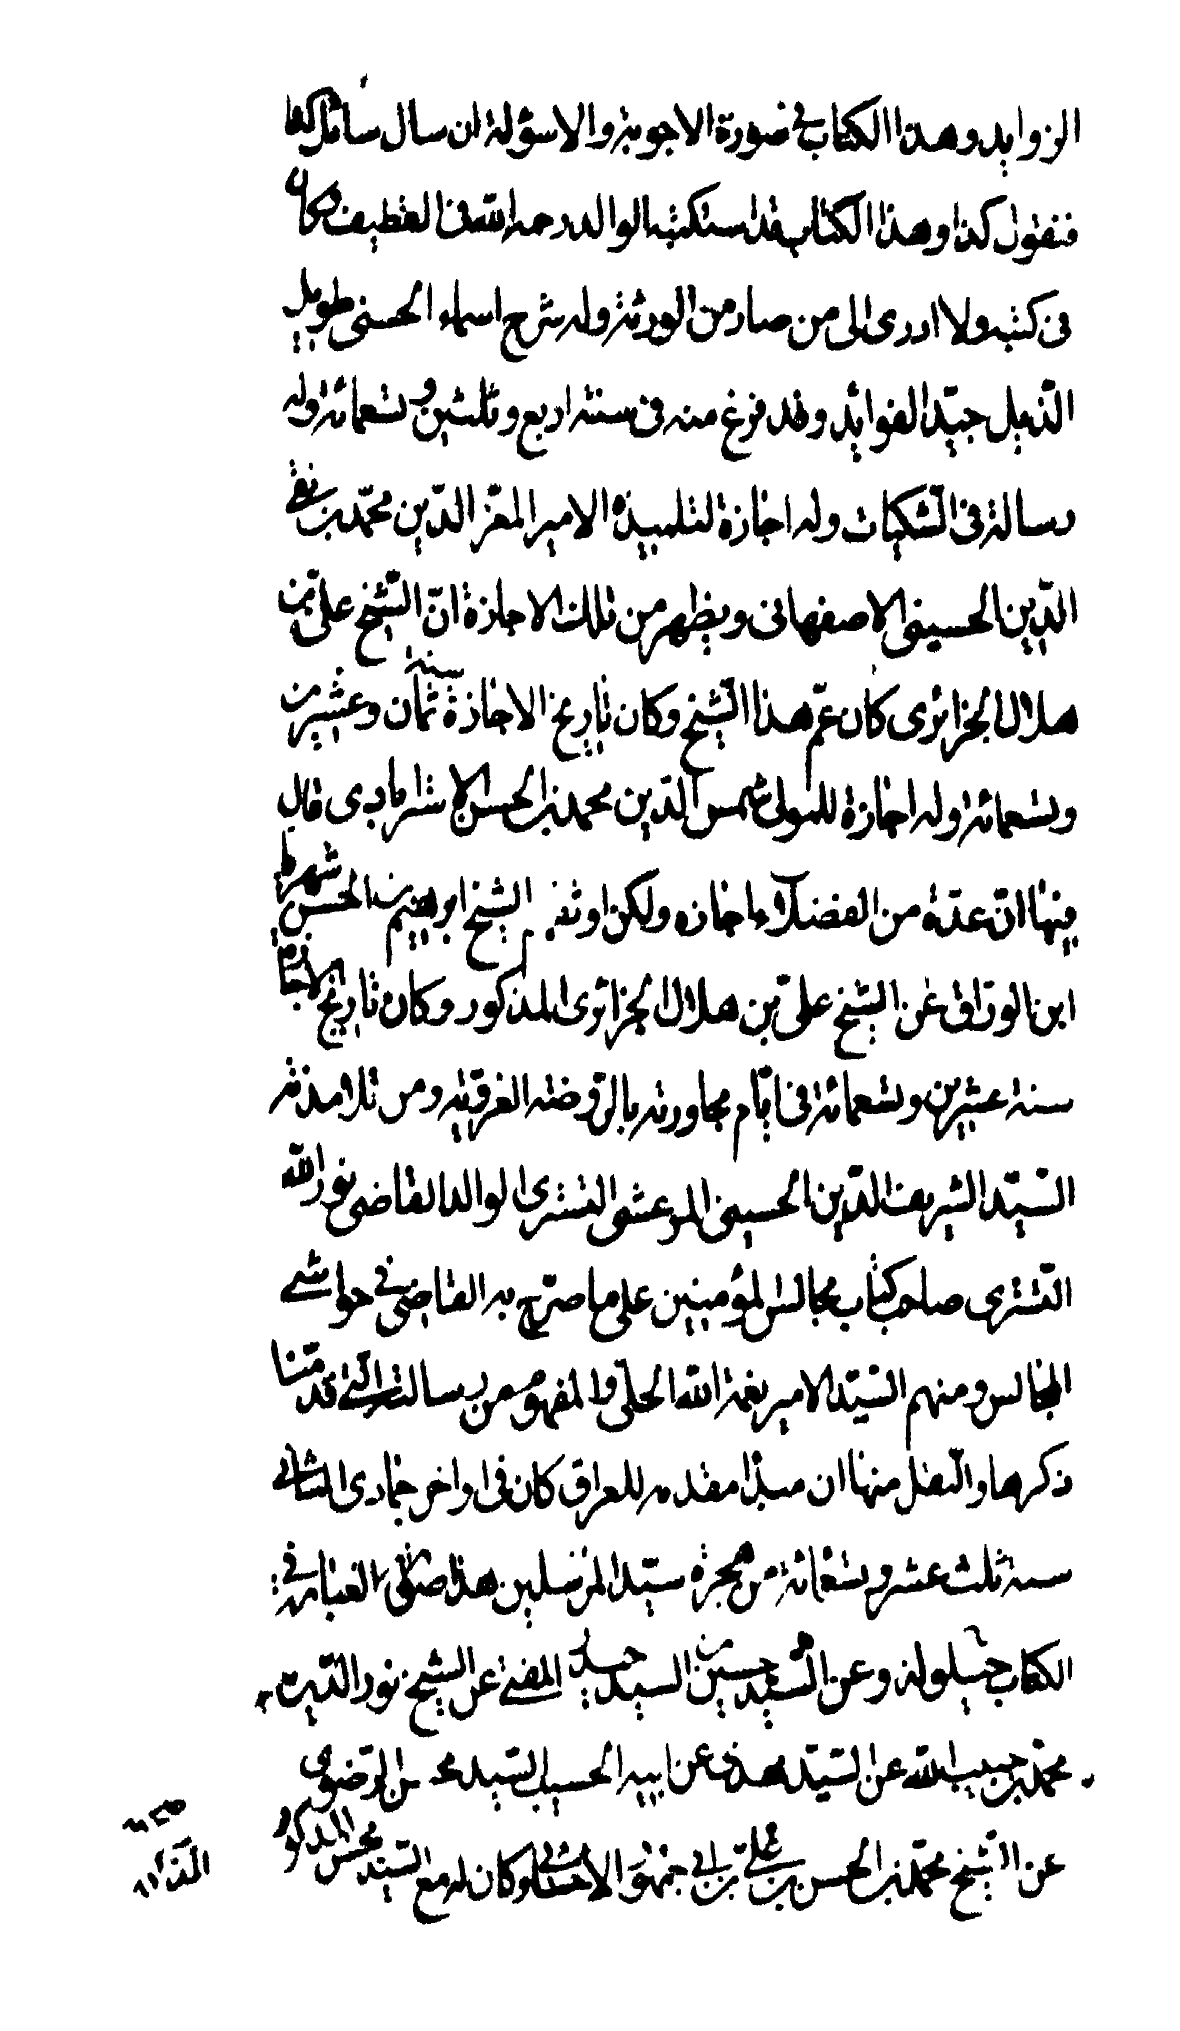 الزوايد وهذا الكتاب في صورة الاجوبة والاسؤلة ان سال سائل كذا
فنقول كذا وهذا الكتاب قد استكتبه الوالد رحمه الله في القطيف وكان
في كتبه ولا ادرى الى من صار من الورثة وله شرح اسماء الحسنى طويل
الذيل جيد الفوايد وقد فرغ منه في سنة اربع وثلثين وتسعمائة وله
رسالة في الشكيات وله اجازة لتلميذه الامير المعز الدين محمد بن تقي
الدين الحسيني الاصفهانى ويظهر من تلك الاجازة ان الشيخ على بن
هلال الجزائرى كان عم هذا الشيخ وكان تاريخ الاجازة سنة ثمان وعشرين
وتسعمائة وله اجازة للمولى شمس الدين محمد بن الحسن الاسترابادى قال
فيها ان عدة من الفضلاء اجازه ولكن اوثقهم الشيخ ابراهيم بن الحسن شهرة
ابن الوراق عن الشيخ على بن هلال الجزائرى المذكور وكان تاريخ الاجازة
سنة عشرين وتسعمائة في ايام مجاورته بالروضة الغروية ومن تلامذته
السيد الشريف الدين الحسيني المرعشى التسترى الوالد القاضى نور الله
التسترى صاحب كتاب مجالس المؤمنين على ما صرح به القاضى في حواشي
المجالس ومنهم السيد الامير نعمة الله الحلى والمفهوم من رسالته التي قدمنا
ذكرها والنقل منها ان مبدا مقدمه للعراق كان في اواخر جمادى الثاني
سنة ثلث عشر وتسعمائة من هجرة سيد المرسلين هذا العبارة في
الكتاب حيلولة وعن السيد حسين بن السيد حيدر المفتي عن الشيخ نور الدين
محمد بن حبيب الله عن السيد مهدى عن ابيه الحسيب السيد محسن الرضوى
عن الشيخ محمد بن الحسن بن على بن ابي جمهور الاحسائى وكان له مع السيد محسن المذكور